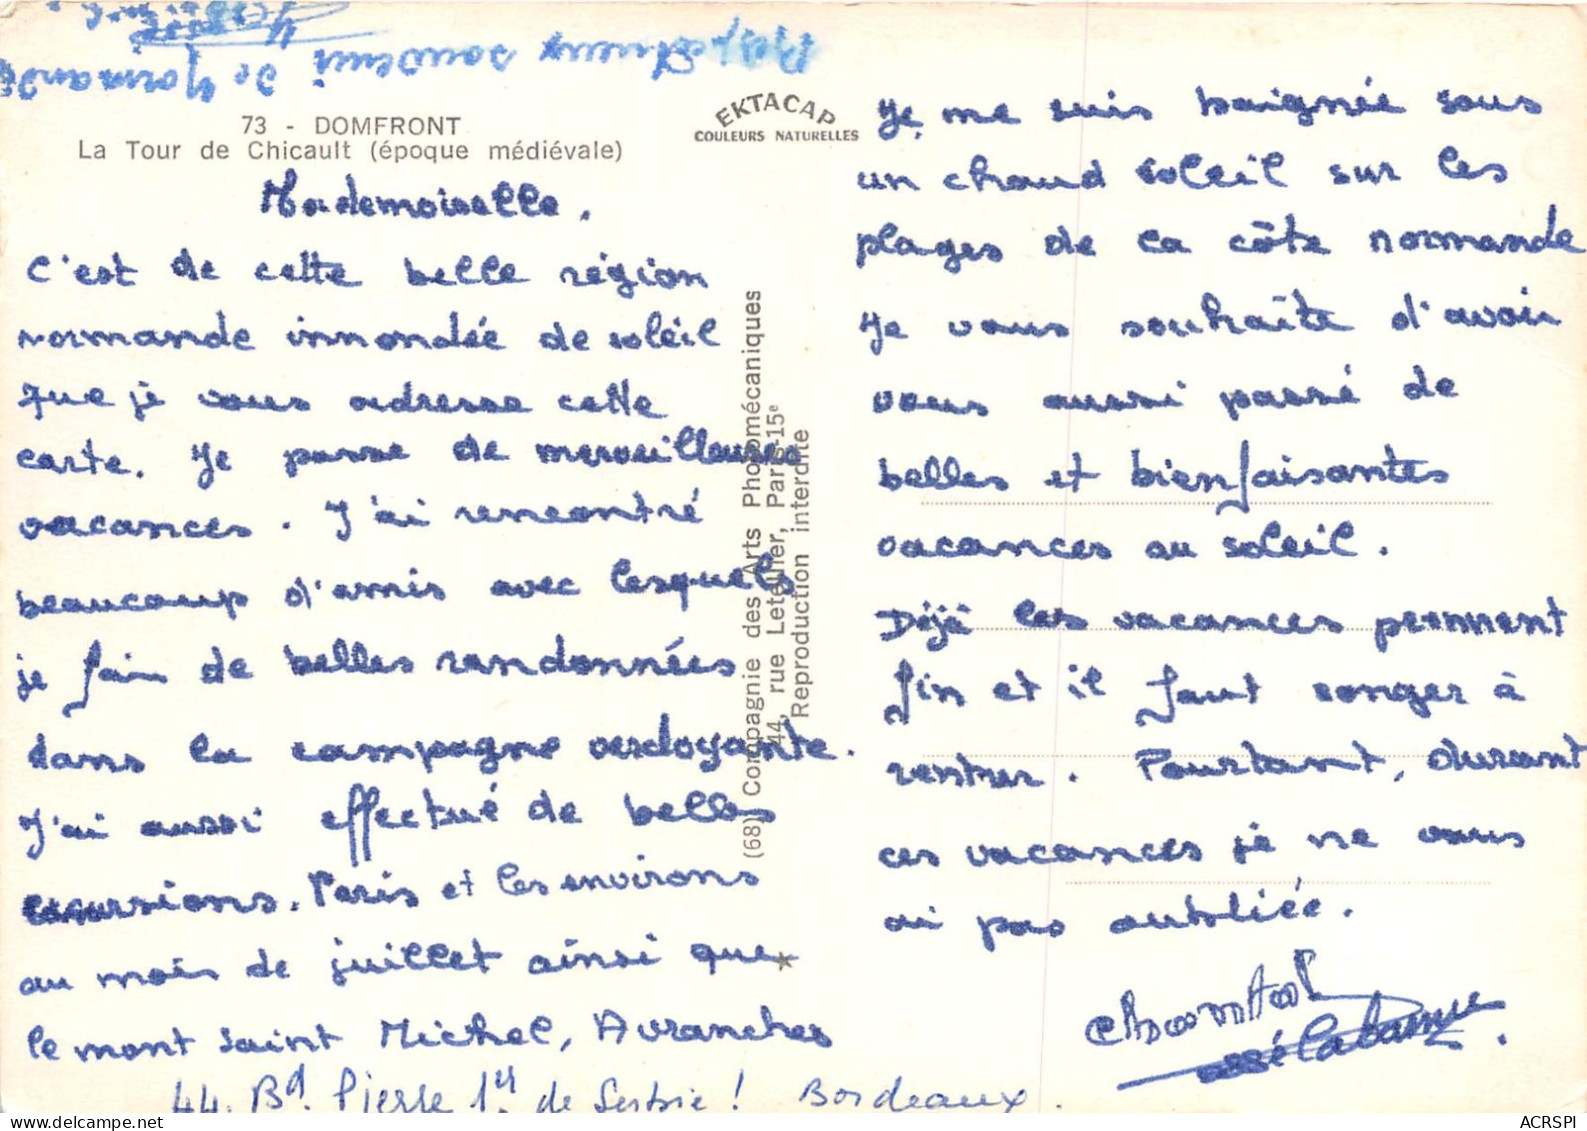 Respectueux souvenir de Normandie
73 - DOMFRONT
La Tour de Chicault (époque médiévale)
EKTACAP
COULEURS NATURELLES
Mademoiselle,
C'est de cette belle région
normande innondée de soleil
que je vous adresse cette
carte. Je passe de merveilleuses
vacances. J'ai rencontré
beaucoup d'amis avec lesquels
je fais de belles randonnées
dans la campagne verdoyante.
J'ai aussi effectué de belles
excursions. Paris et les environs
au mois de juillet ainsi que
le mont Saint Michel, Avranches
44. Bd. Pierre 1er de Serbie ! Bordeaux.
(68) Compagnie des Arts Photomécaniques
44, rue Letellier, Paris-15e
Reproduction interdite
Je me suis baignée sous
un chaud soleil sur les
plages de la côte normande
Je vous souhaite d'avoir
vous aussi passé de
belles et bienfaisantes
vacances au soleil.
Déjà les vacances prennent
fin et il faut songer à
rentrer. Pourtant, durant
ces vacances je ne vous
ai pas oubliée.
Chantal
ACRSPI